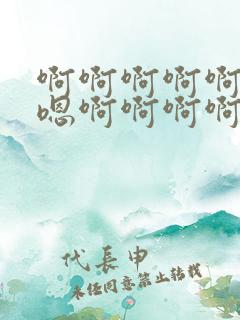 啊啊啊啊啊
嗯啊啊啊啊
代長申
未经同意禁止转载